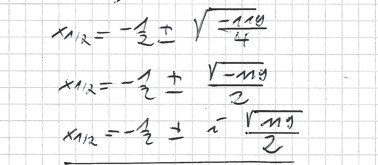 x₁/₂ = -1/2 ± √(-119/4)
x₁/₂ = -1/2 ± √-119/2
x₁/₂ = -1/2 ± i √119/2